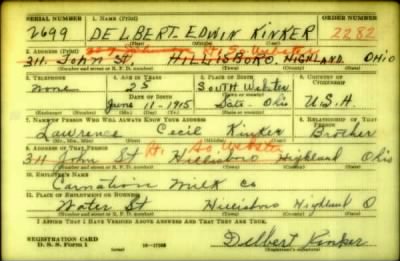 SERIAL NUMBER 1. NAME (Print) ORDER NUMBER
2699 DELBERT EDWIN KINKER 2282
(First) (Middle) (Last)
2. ADDRESS (Print)
311 JOHN ST. HILLSBORO, HIGHLAND OHIO
(Number and street or R. F. D. number) (Town) (County) (State)
3. TELEPHONE 4. AGE IN YEARS 5. PLACE OF BIRTH 6. COUNTRY OF CITIZENSHIP
none 25 South Webster
DATE OF BIRTH
June 11-1915 State-Ohio U.S.A.
(Mo.) (Day) (Yr.) (State or country)
7. NAME OF PERSON WHO WILL ALWAYS KNOW YOUR ADDRESS 8. RELATIONSHIP OF THAT PERSON
Lawrence Cecil Kinker Brother
(Mr., Mrs., Miss) (First) (Middle) (Last)
9. ADDRESS OF THAT PERSON So. Webster
311 John St Hillsboro Highland Ohio
(Number and street or R. F. D. number) (Town) (County) (State)
10. EMPLOYER'S NAME
Carnation Milk Co
11. PLACE OF EMPLOYMENT OR BUSINESS
Water St Hillsboro Highland O
(Number and street or R. F. D. number) (Town) (County) (State)
I AFFIRM THAT I HAVE VERIFIED ABOVE ANSWERS AND THAT THEY ARE TRUE.
REGISTRATION CARD
D. S. S. Form 1 Delbert Kinker
(Registrant's signature)